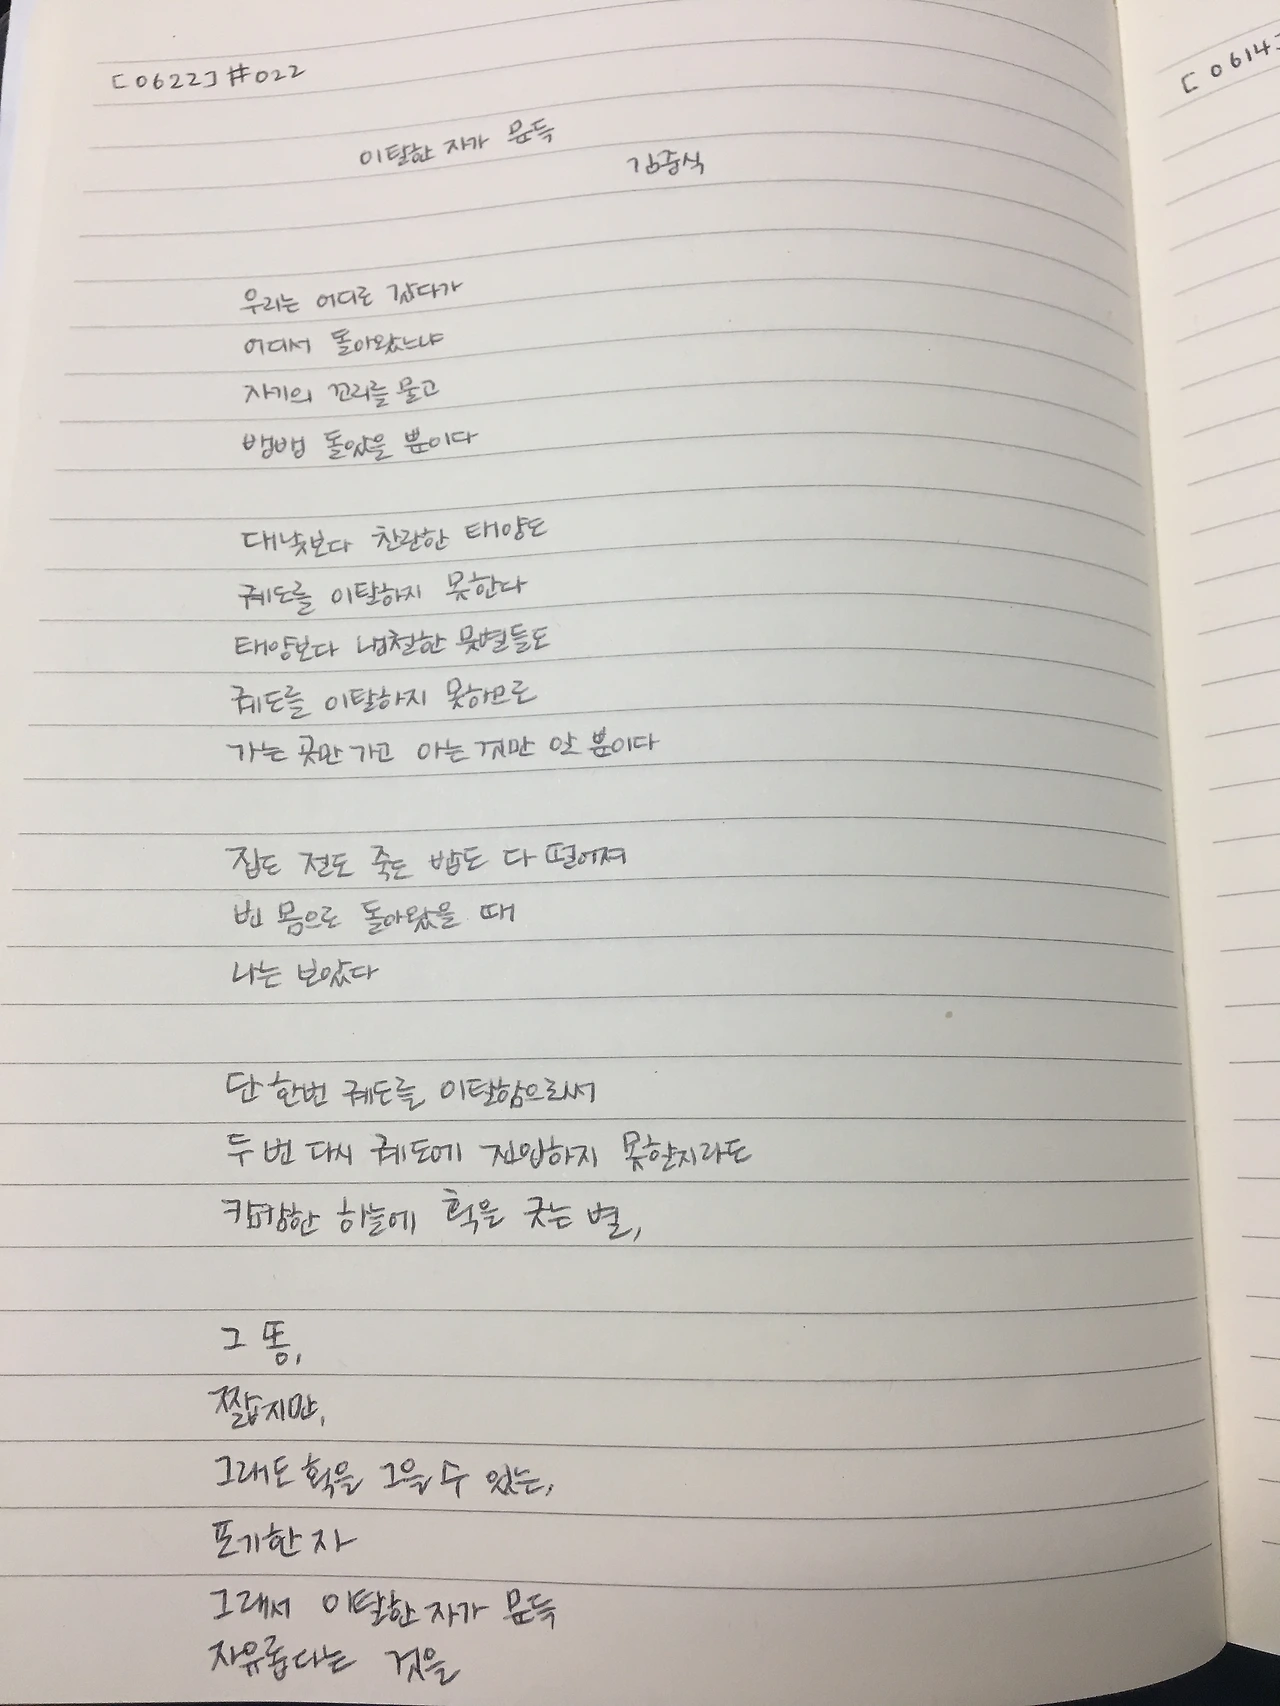 [0622] #022
이탈한 자가 문득
김중식
우리는 어디로 갔다가
어디서 돌아왔느냐
자기의 꼬리를 물고
뱅뱅 돌았을 뿐이다
대낮보다 찬란한 태양도
궤도를 이탈하지 못한다
태양보다 냉철한 뭇별들도
궤도를 이탈하지 못하므로
가는 곳만 가고 아는 것만 알 뿐이다
집도 절도 죽도 밥도 다 떨어져
빈 몸으로 돌아왔을 때
나는 보았다
단 한번 궤도를 이탈함으로써
두 번 다시 궤도에 진입하지 못할지라도
캄캄한 하늘에 획을 긋는 별,
그 똥,
짧지만,
그래도 획을 그을 수 있는,
포기한 자
그래서 이탈한 자가 문득
자유롭다는 것을
[0614]